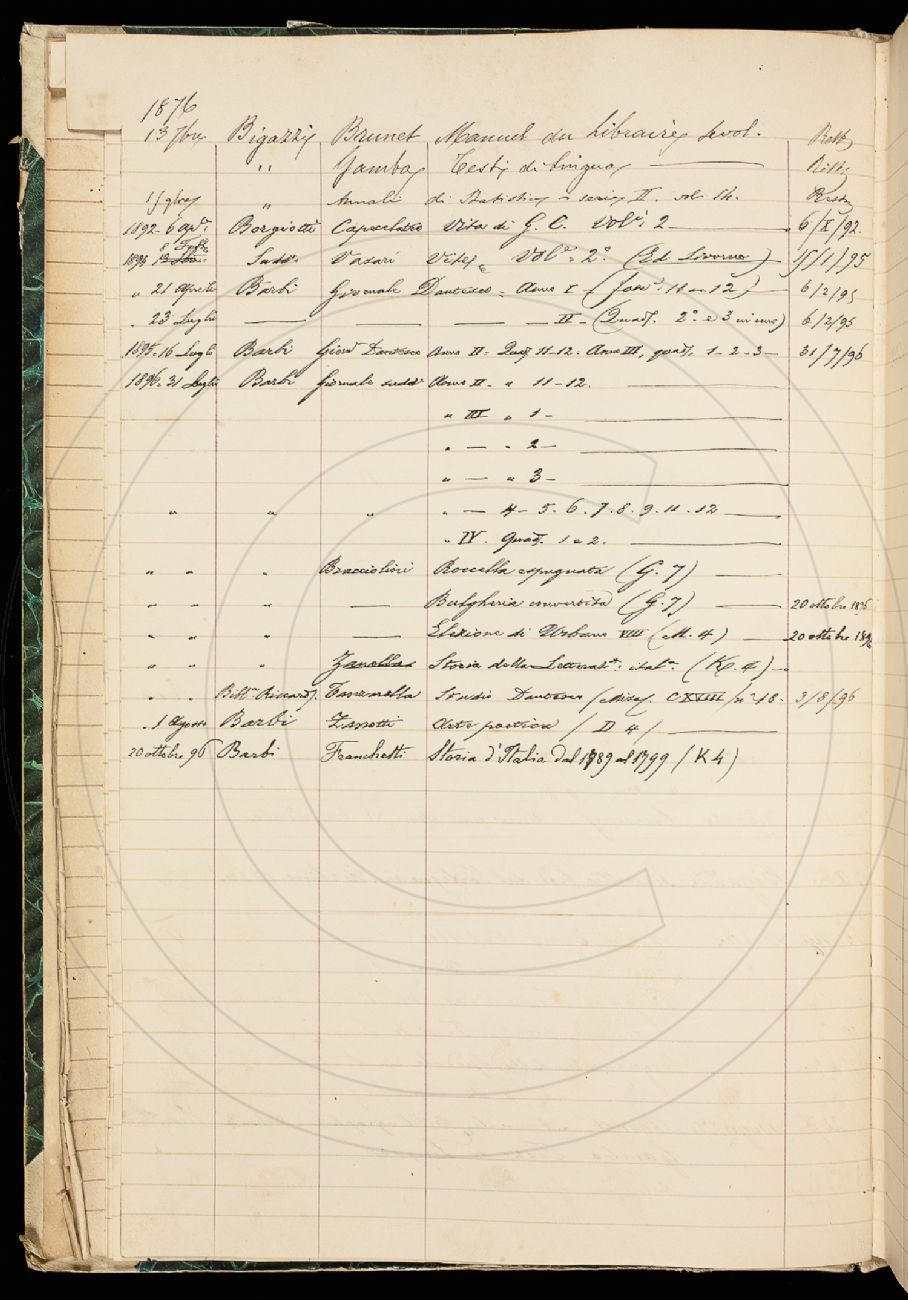 1876
13 7bre Bigazzi Brunet Manuel du Libraire, 5 vol.
" Gamba Testi di Lingua
" Annali di Statistica serie II. vol. 14.
1892 6 Borgiotti Capecelatro Vita di G. C. Vol: 2 6/X/92.
Sudd. Vasari Vite Vol: 2° (Ed Livorno) 15/1/95
" 21 Aprile Barbi Giornale Dantesco Anno I (11-12) 6/2/95
" 23 Luglio — — — II (Quad. 2° e 3) 6/2/95
1895. 16 Lugl. Barbi Giorn Dantesco Anno II. Quad. 11-12. Anno III, quad. 1-2-3- 31/7/96
1896. 31 Luglio Barbi Giornale sudd° Anno II - " 11-12.
" III " 1 -
" — " 2 -
" — " 3 -
" " " " — 4 - 5. 6. 7. 8. 9. 11. 12
" IV. Quad. 1 e 2.
" " " Bracciolini Roccella espugnata (G. 7)
" " " — Bulgheria convertita (G. 7) 20 ottobre 1896
" " " — Elezione di Urbano VIII (M. 4) 20 ottobre 1896
" " " Zanella Storia della Letterat. ital. (K. 4)
" " Bibl. Riccard. Studi Danteschi (Misc. CXVIII/n° 18. 3/8/96
" 1 Agosto Barbi Zanotti Arte poetica / D 4 /
20 ottobre 96 Barbi Franchetti Storia d'Italia dal 1789 al 1799 (K 4)